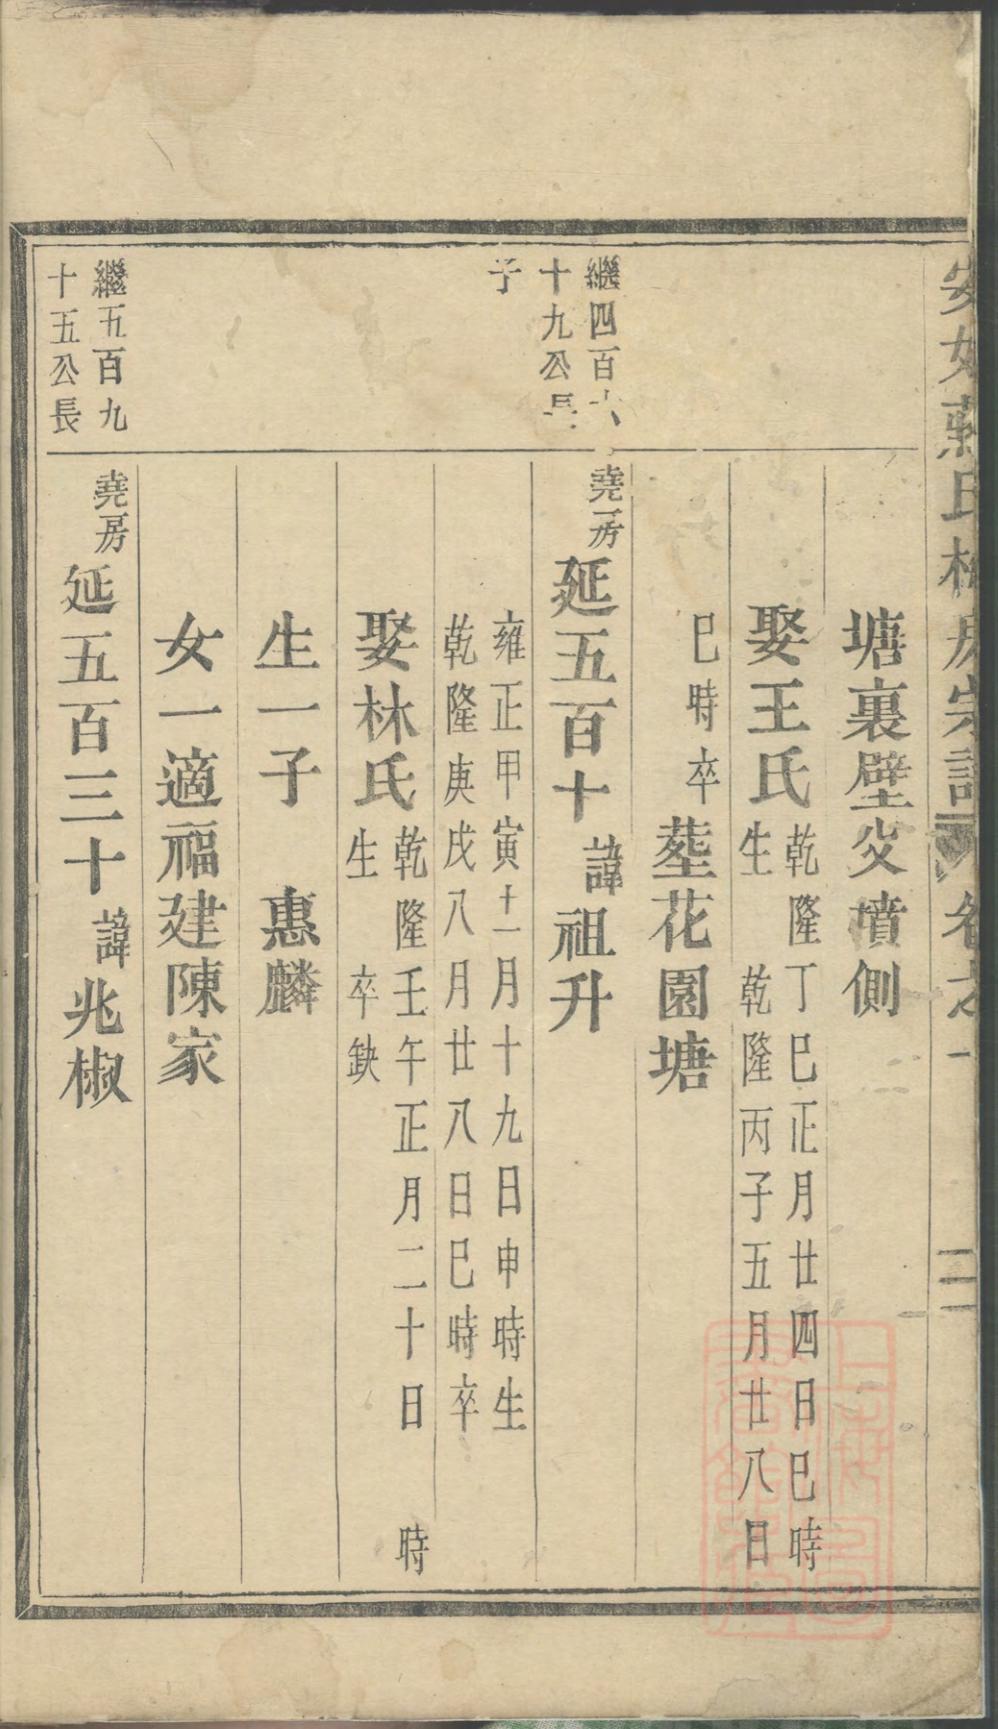 氏
宗
卷
二
塘裏壁父墳側
娶王氏
乾隆丁巳正月廿四日巳時
生 乾隆丙子五月廿八日
巳時卒
塟花園塘
繼四百六
十九公長
子
堯房
延五百十
諱
祖升
雍正甲寅十一月十九日申時生
乾隆庚戌八月廿八日巳時卒
娶林氏
乾隆壬午正月二十日 時
生 卒缺
生一子 惠麟
女一適福建陳家
繼五百九
十五公長
堯房
延五百三十
諱
兆椒